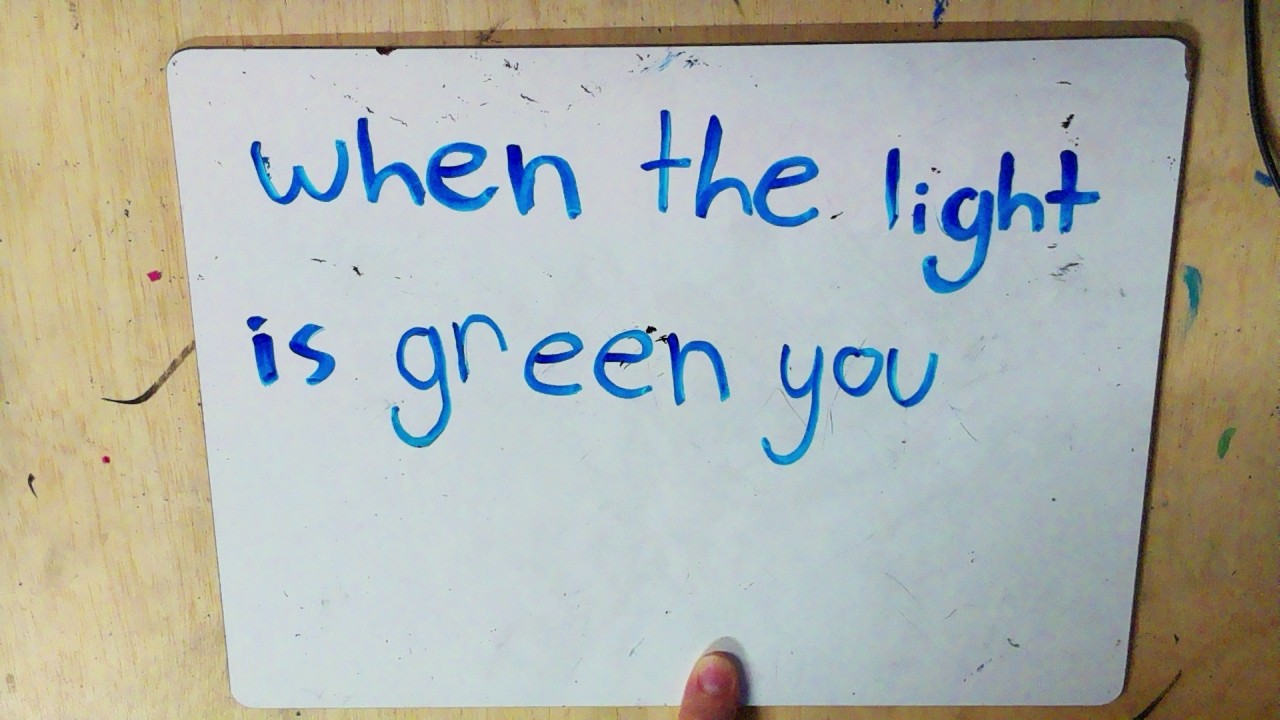 when the light
is green you